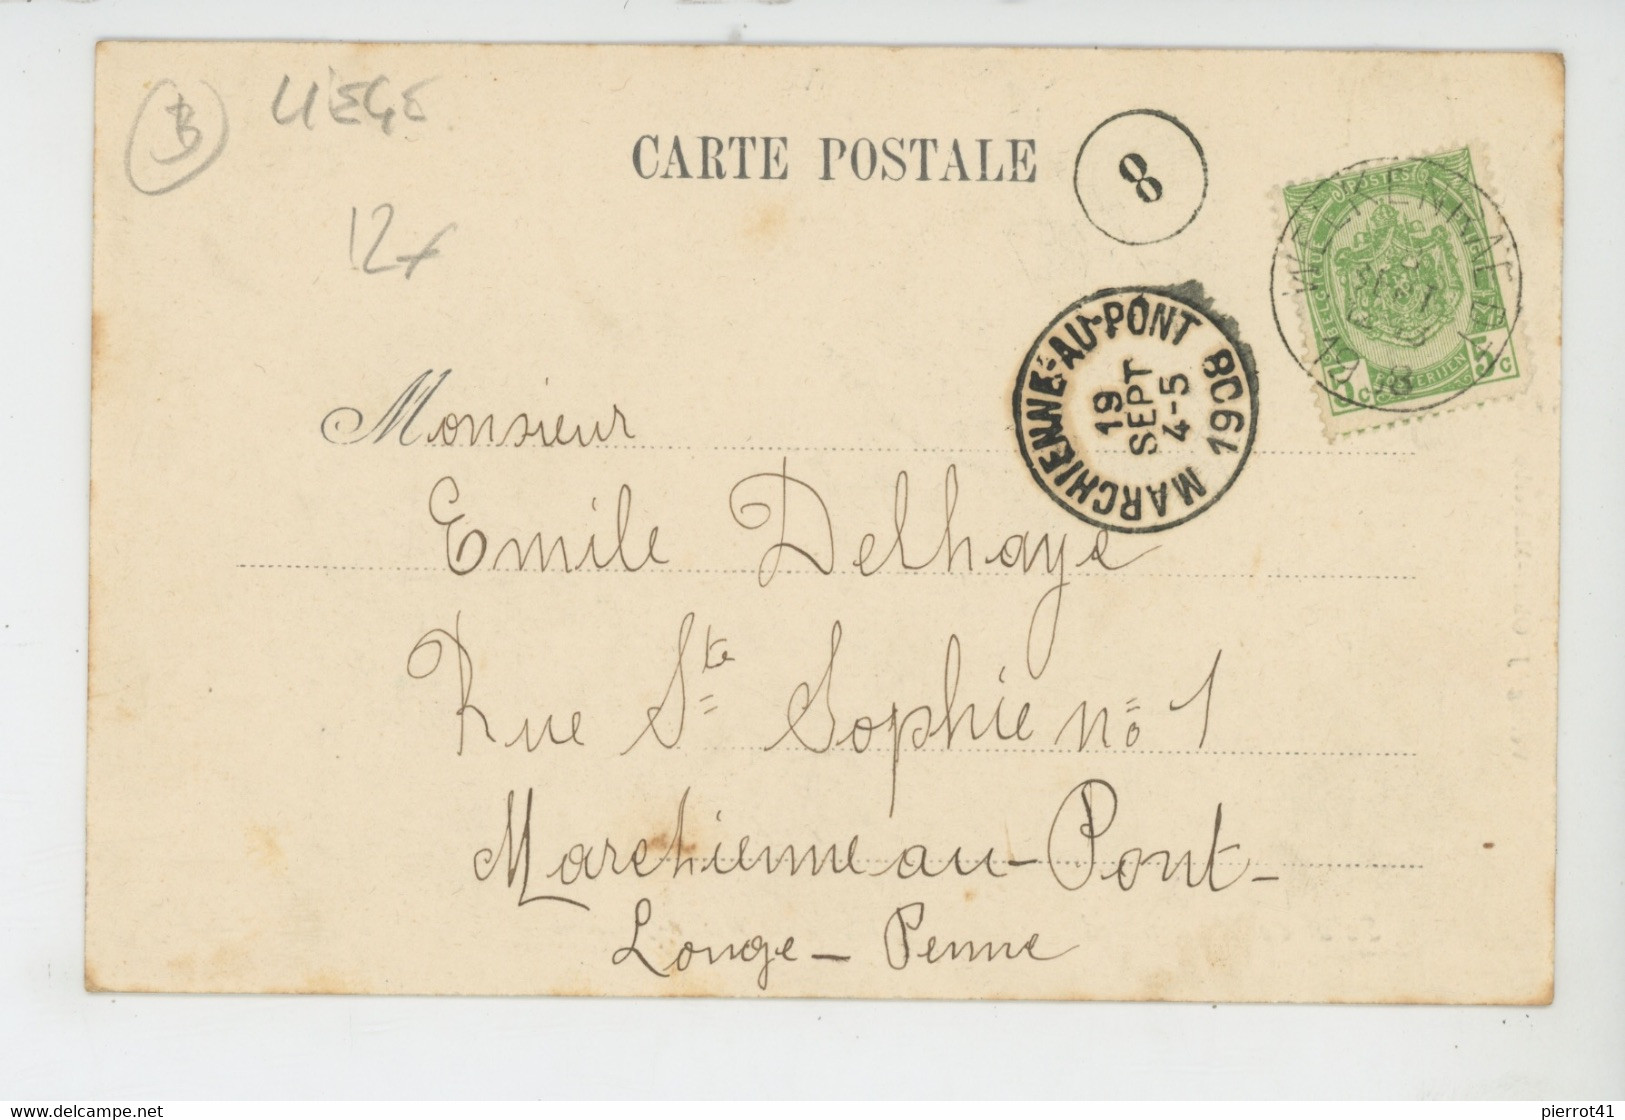 B LIEGE
12
CARTE POSTALE
8
POSTES
BELGIQUE
5 c 5 c
MARCHIENNE-AU-PONT
19
SEPT
4-5
1908
Monsieur
Emile Delhaye
Rue Ste Sophie no 1
Marchienne au-Pont-
Longe-Penne
pierrot41